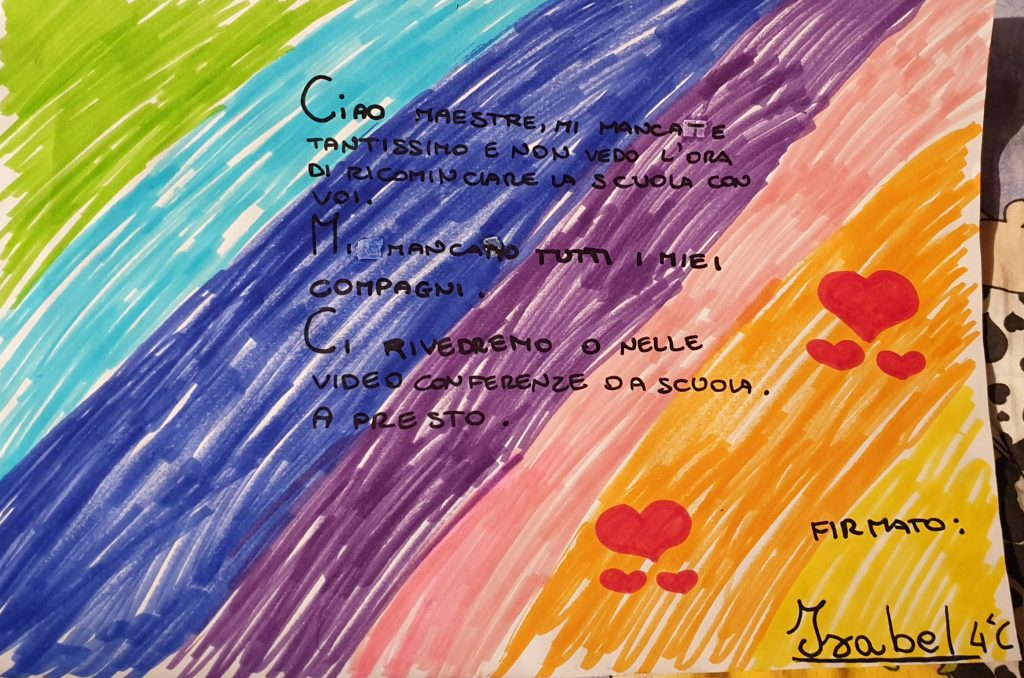 Ciao MAESTRE, MI MANCATE
TANTISSIMO E NON VEDO L'ORA
DI RICOMINCIARE LA SCUOLA CON
VOI.
MI MANCANO TUTTI I MIEI
COMPAGNI.
CI RIVEDREMO O NELLE
VIDEO CONFERENZE O A SCUOLA.
A PRESTO.
FIRMATO:
Isabel 4ªC